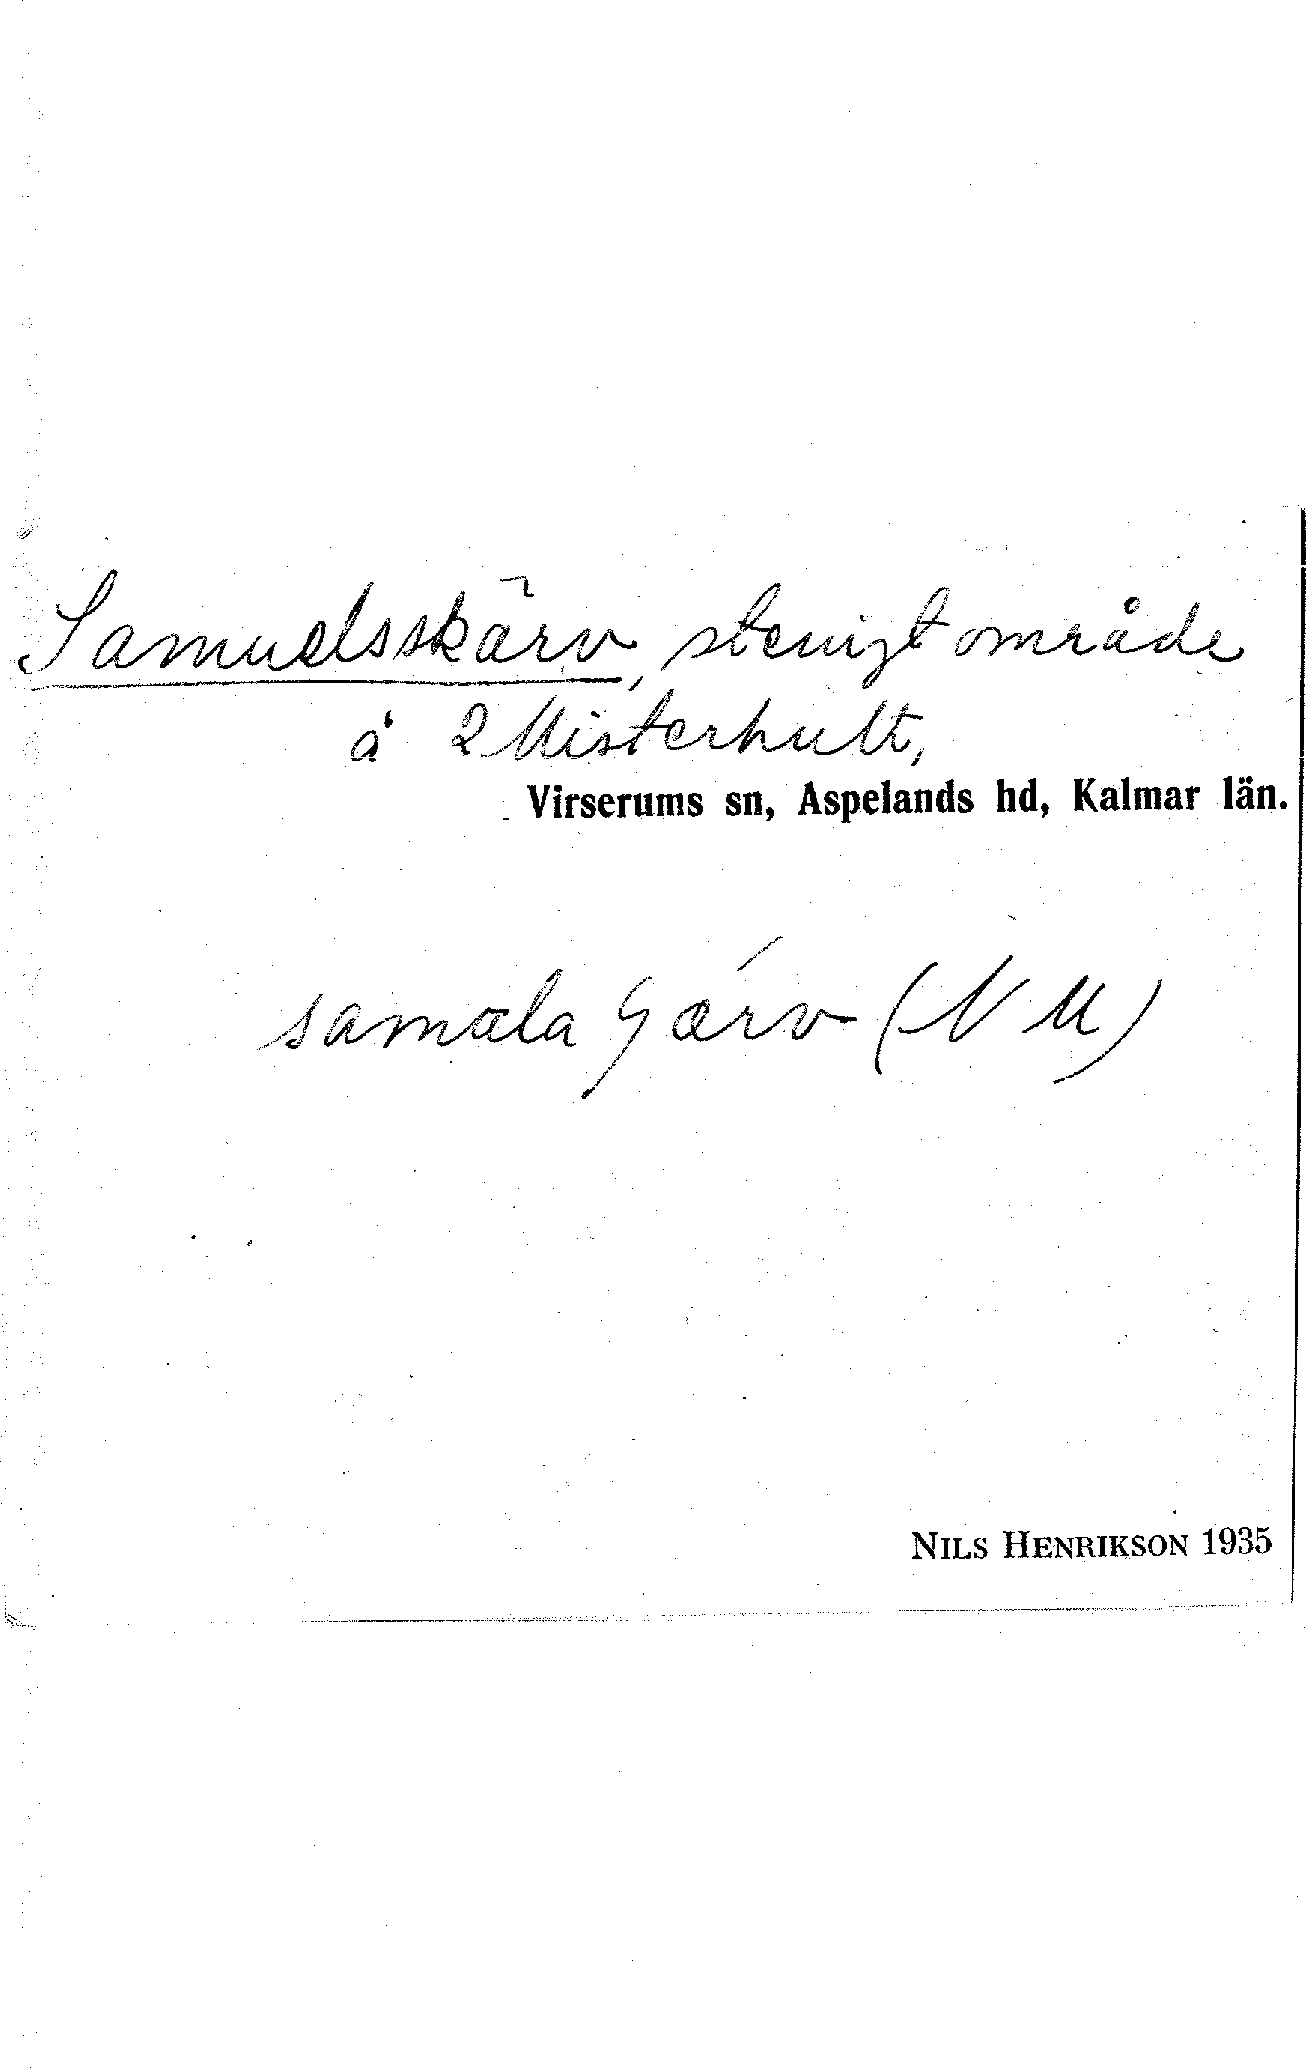 Samuelsskärv, stenigt område
å 2 Misterhult,
Virserums sn, Aspelands hd, Kalmar län.
samæla ɕǽrv (N M)
NILS HENRIKSON 1935